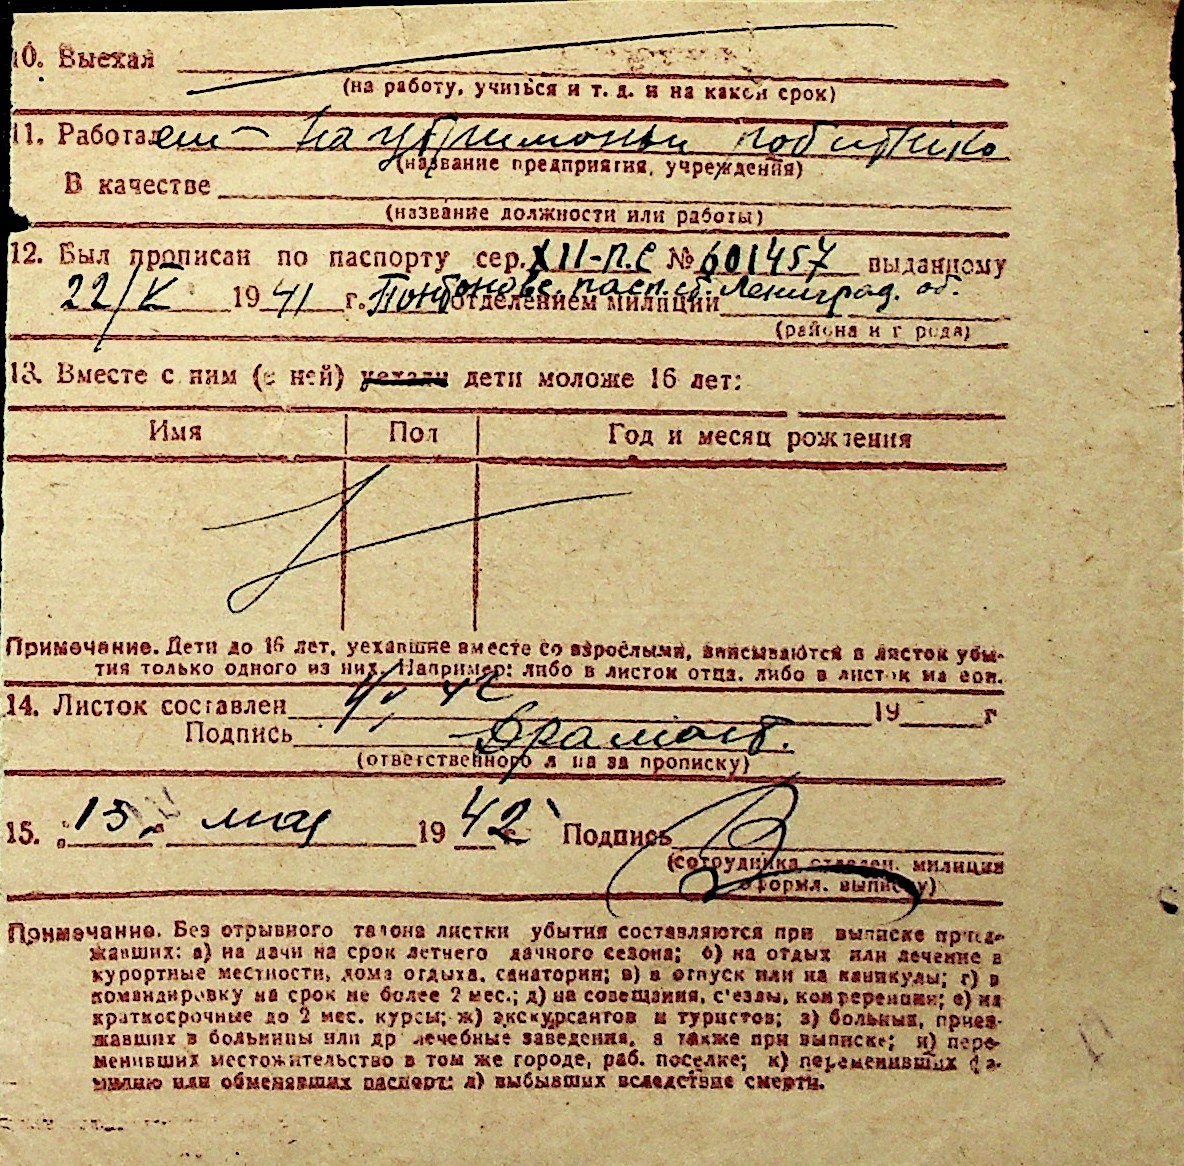 10. Выехал
(на работу, учиться и т. д. и на какой срок)
11. Работал
(название предприятия, учреждения)
В качестве
(название должности или работы)
12. Был прописан по паспорту сер. XII-П.С № 601457 выданному
22/V 1941 г. пасп. ст. Ленинград. об.
отделением милиции
(района и города)
13. Вместе с ним (с ней) уехали дети моложе 16 лет:
Имя Пол Год и месяц рождения
Примечание. Дети до 16 лет, уехавшие вместе со взрослыми, вписываются в листок убы-
тия только одного из них. Например: либо в листок отца, либо в листок матери.
14. Листок составлен 19 г
Подпись
(ответственного лица за прописку)
15. „15." мая 1942 г. Подпись
(сотрудника отделен. милиции
оформл. выписку)
Примечание. Без отрывного талона листки убытия составляются при выписке приез-
жавших: а) на дачи на срок летнего дачного сезона; б) на отдых или лечение в
курортные местности, дома отдыха, санатории; в) в отпуск или на каникулы; г) в
командировку на срок не более 2 мес.; д) на совещания, с'езды, конференции; е) на
краткосрочные до 2 мес. курсы; ж) экскурсантов и туристов; з) больных, приез-
жавших в больницы или др лечебные заведения, а также при выписке; и) пере-
менивших местожительство в том же городе, раб. поселке; к) переменивших фа-
милию или обменявших паспорт; л) выбывших вследствие смерти.